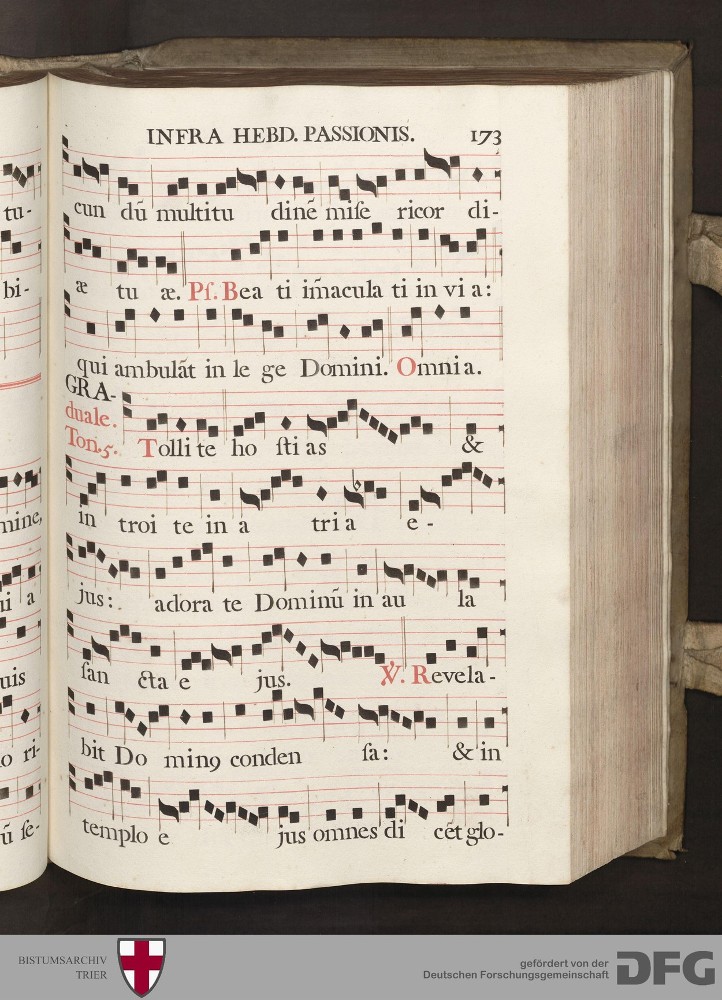 INFRA HEBD. PASSIONIS. 173
cun dū multitu dinē miſe ricor di-
æ tu æ. Pſ. Bea ti im̄acula ti in vi a:
qui ambulāt in le ge Domini. Omnia.
GRA-
duale.
Ton.5. Tolli te ho ſti as &
in troi te in a tri a e -
jus: adora te Dominū in au la
ſan cta e jus. ℣. Revela-
bit Do minꝰ conden ſa: & in
templo e jus omnes di cēt glo-
tu-
bi-
mine,
ui a
uis
lo ri-
ū ſe-
BISTUMSARCHIV
TRIER
gefördert von der
Deutschen Forschungsgemeinschaft
DFG